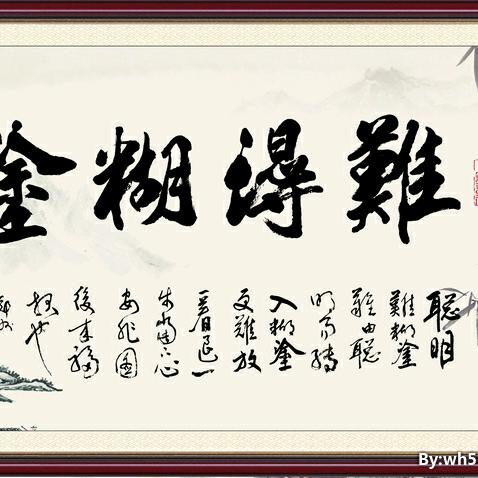 難得糊塗
聰明
難糊塗
難由聰
明而轉
入糊塗
更難放
一着退一
步當下心
安非圖
後来福
報也
By:wh5